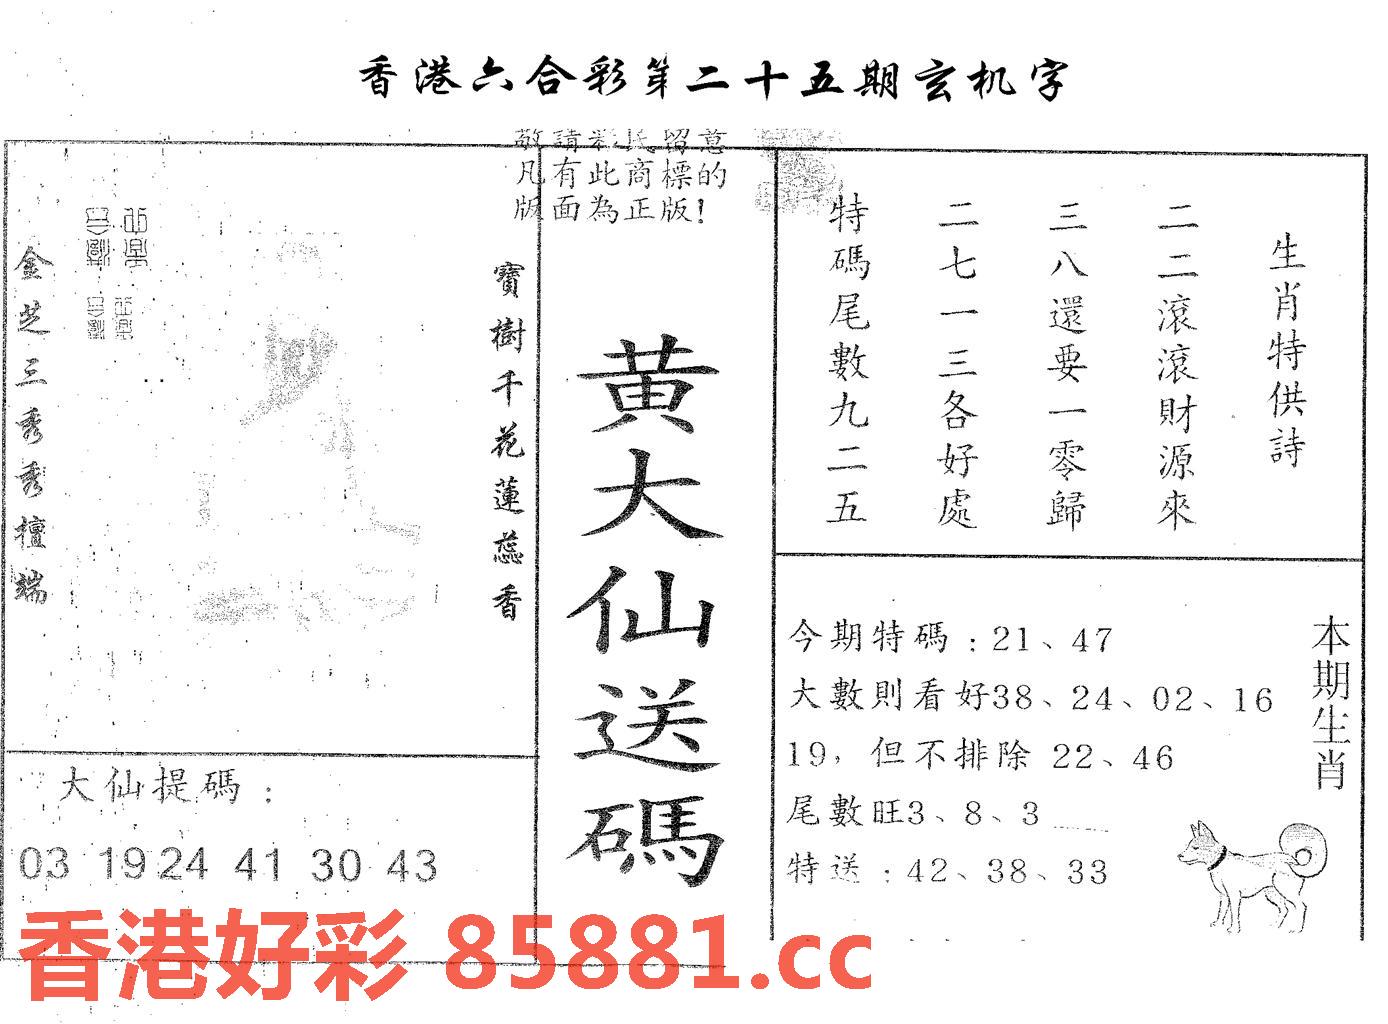 香港六合彩第二十五期玄机字
敬請彩民留意
凡有此商標的
版面為正版!
生肖特供詩
二二滾滾財源來
三八還要一零歸
二七一三各好處
特碼尾數九二五
黄大仙送碼
寶樹千花蓮蕊香
金芝三秀秀檀端
大仙提碼：
03 19 24 41 30 43
本期生肖
今期特碼：21、47
大數則看好38、24、02、16
19，但不排除 22、46
尾數旺3、8、3
特送：42、38、33
香港好彩 85881.cc